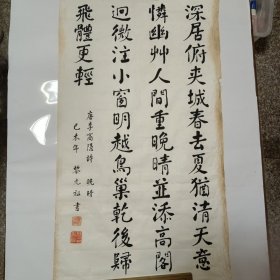 深居俯夾城春去夏猶清天意
憐幽艸人間重晚晴並添高閣
迥微注小窗明越鳥巢乾後歸
飛體更輕
唐李商隱詩 晚晴
己未年 黎光祖書